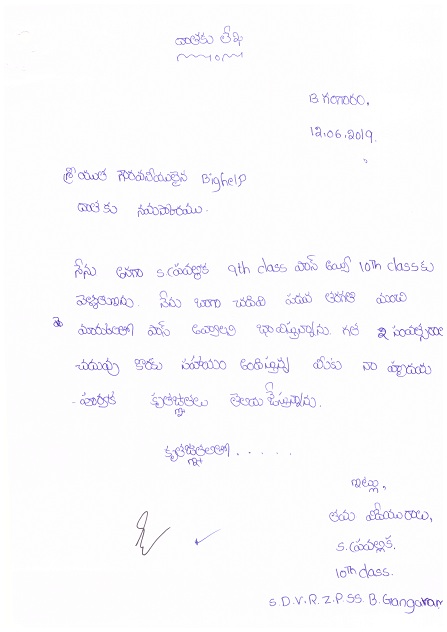 దాతకు లేఖ
B గంగారం,
12.06.2019.
శ్రీయుత గౌరవనీయులైన Bighelp
దాతకు నమస్కారము.
నేను అనగా S.ప్రవల్లిక 9th class పాస్ అయ్యి 10th class కు
వెళ్ళుతున్నాను. నేను బాగా చదివి పదవ తరగతి మంచి
మార్కులతో పాస్ అవ్వాలని భావిస్తున్నాను. గత 2 సంవత్సరాల
చదువు కొరకు సహాయం అందిస్తున్న మీకు నా హృదయ
పూర్వక కృతజ్ఞతలు తెలియ చేస్తున్నాను.
కృతజ్ఞతలతో.....
ఇట్లు,
తమ విధేయురాలు,
S.ప్రవల్లిక.
10th class.
S.D.V.R.Z.P.SS. B.Gangaram